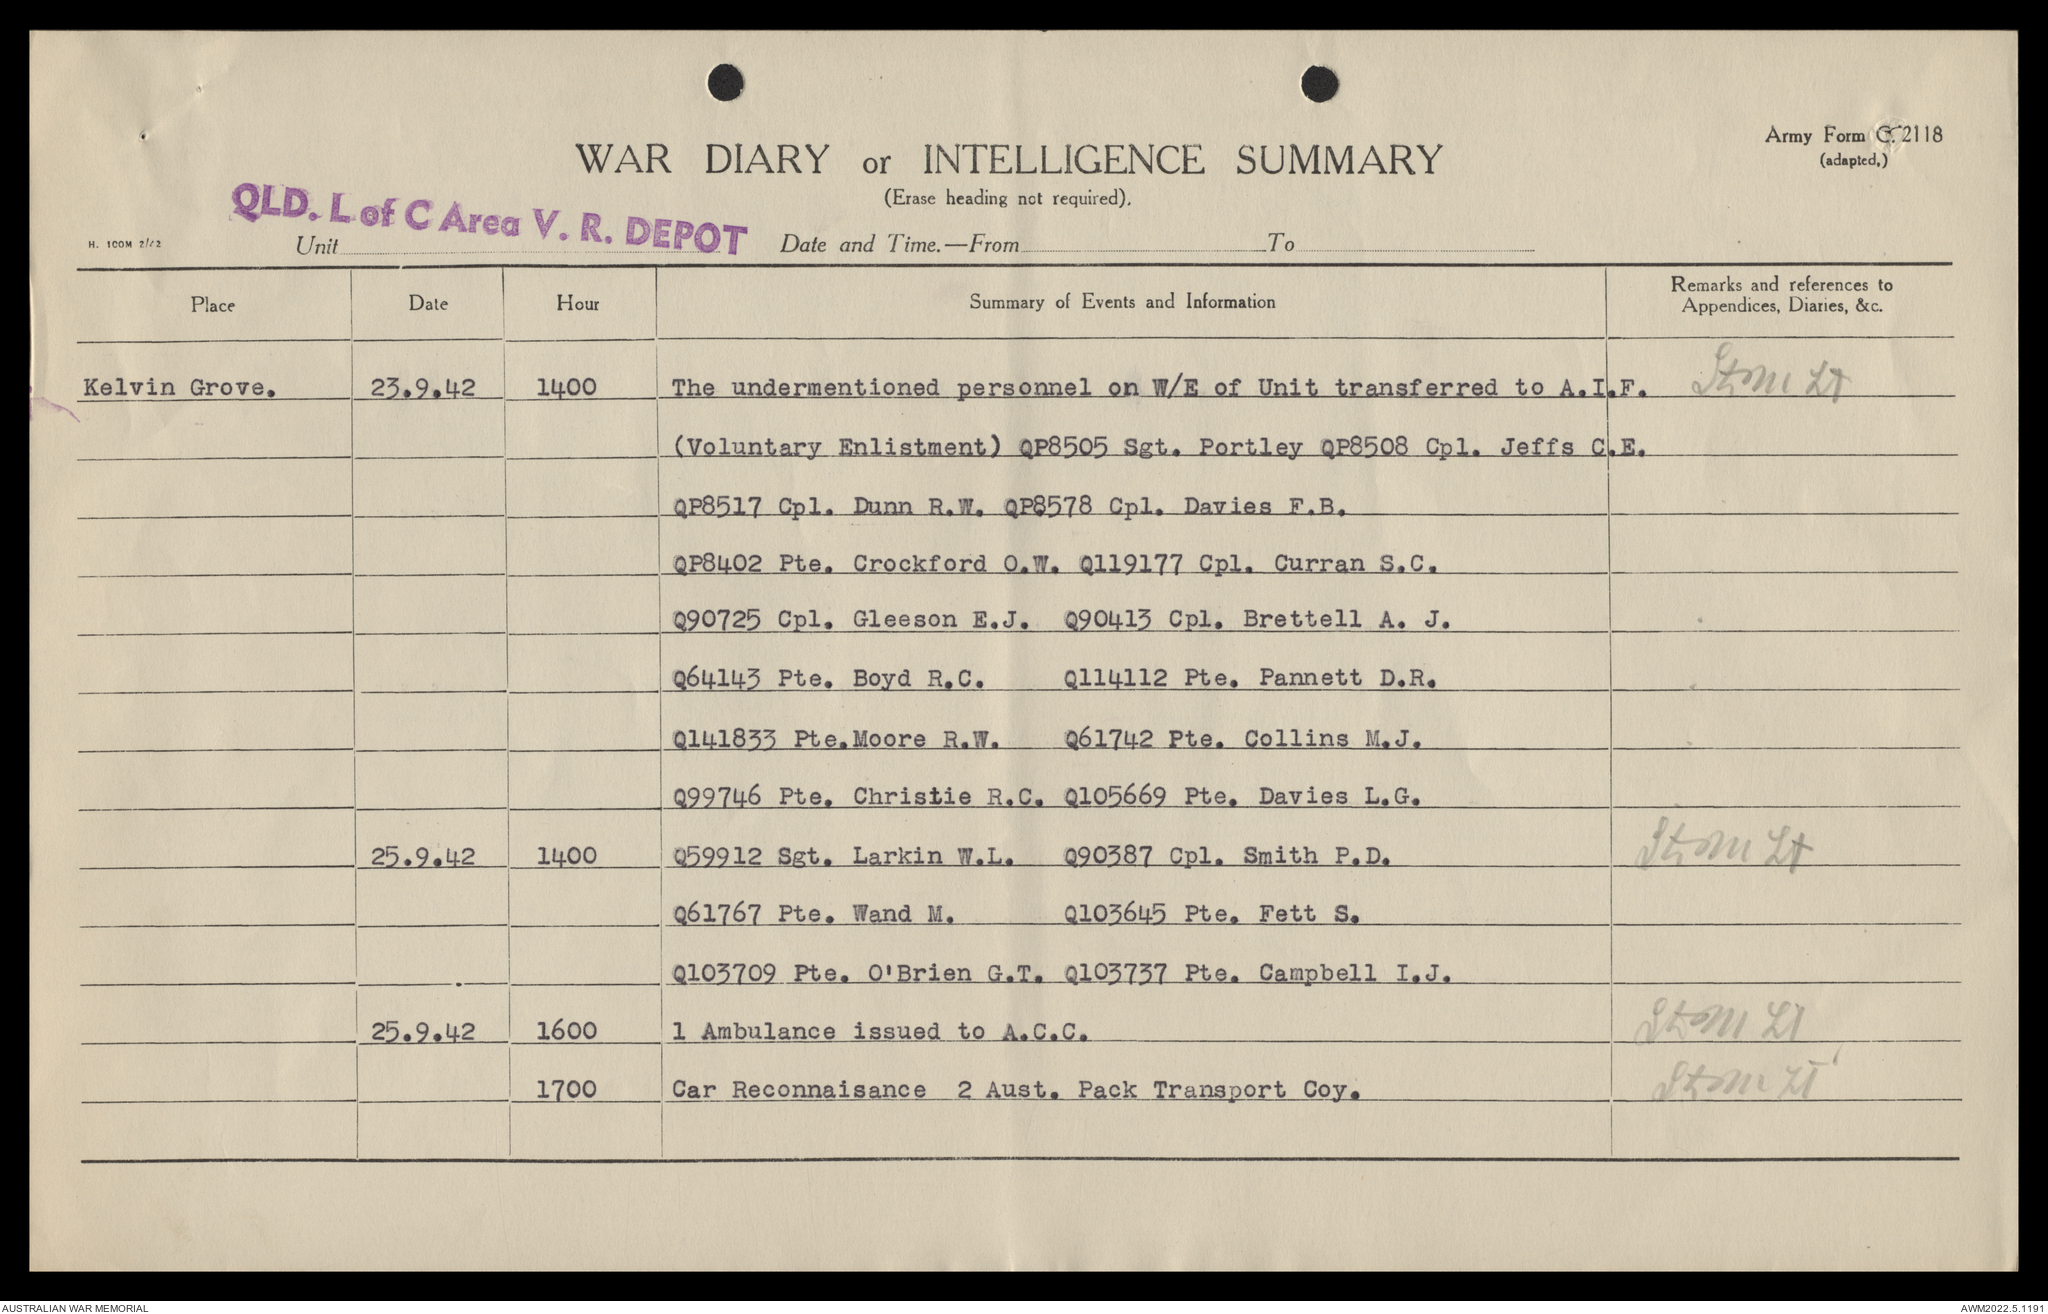 Army Form C. 2118
(adapted.)
WAR DIARY or INTELLIGENCE SUMMARY
(Erase heading not required).
QLD. L of C Area V. R. DEPOT
H. 100M 2/42
Unit
Date and Time.—From
To
Place
Date
Hour
Summary of Events and Information
Remarks and references to
Appendices, Diaries, &c.
Kelvin Grove. 23.9.42 1400 The undermentioned personnel on W/E of Unit transferred to A.I.F. Lt
(Voluntary Enlistment) QP8505 Sgt. Portley QP8508 Cpl. Jeffs C.E.
QP8517 Cpl. Dunn R.W. QP8578 Cpl. Davies F.B.
QP8402 Pte. Crockford O.W. Q119177 Cpl. Curran S.C.
Q90725 Cpl. Gleeson E.J. Q90413 Cpl. Brettell A. J.
Q64143 Pte. Boyd R.C. Q114112 Pte. Pannett D.R.
Q141833 Pte.Moore R.W. Q61742 Pte. Collins M.J.
Q99746 Pte. Christie R.C. Q105669 Pte. Davies L.G.
25.9.42 1400 Q59912 Sgt. Larkin W.L. Q90387 Cpl. Smith P.D. Lt
Q61767 Pte. Wand M. Q103645 Pte. Fett S.
Q103709 Pte. O'Brien G.T. Q103737 Pte. Campbell I.J.
25.9.42 1600 1 Ambulance issued to A.C.C. Lt
1700 Car Reconnaisance 2 Aust. Pack Transport Coy. Lt
AUSTRALIAN WAR MEMORIAL
AWM2022.5.1191